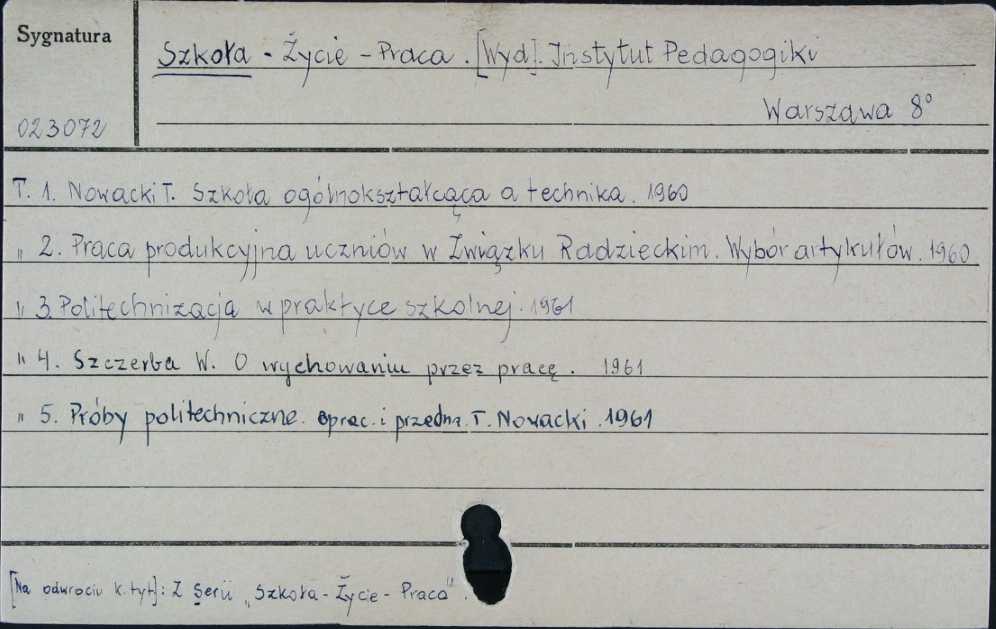 Sygnatura
Szkoła - Życie - Praca. [Wyd]. Instytut Pedagogiki
023072
Warszawa 8°
T. 1. Nowacki T. Szkoła ogólnokształcąca a technika. 1960
" 2. Praca produkcyjna uczniów w Związku Radzieckim. Wybór artykułów. 1960
" 3. Politechnizacja w praktyce szkolnej. 1961
" 4. Szczerba W. O wychowaniu przez pracę. 1961
" 5. Próby politechniczne. oprac. i przedm. T. Nowacki. 1961
[Na odwrociu k. tyt]: Z Serii „Szkoła - Życie - Praca".